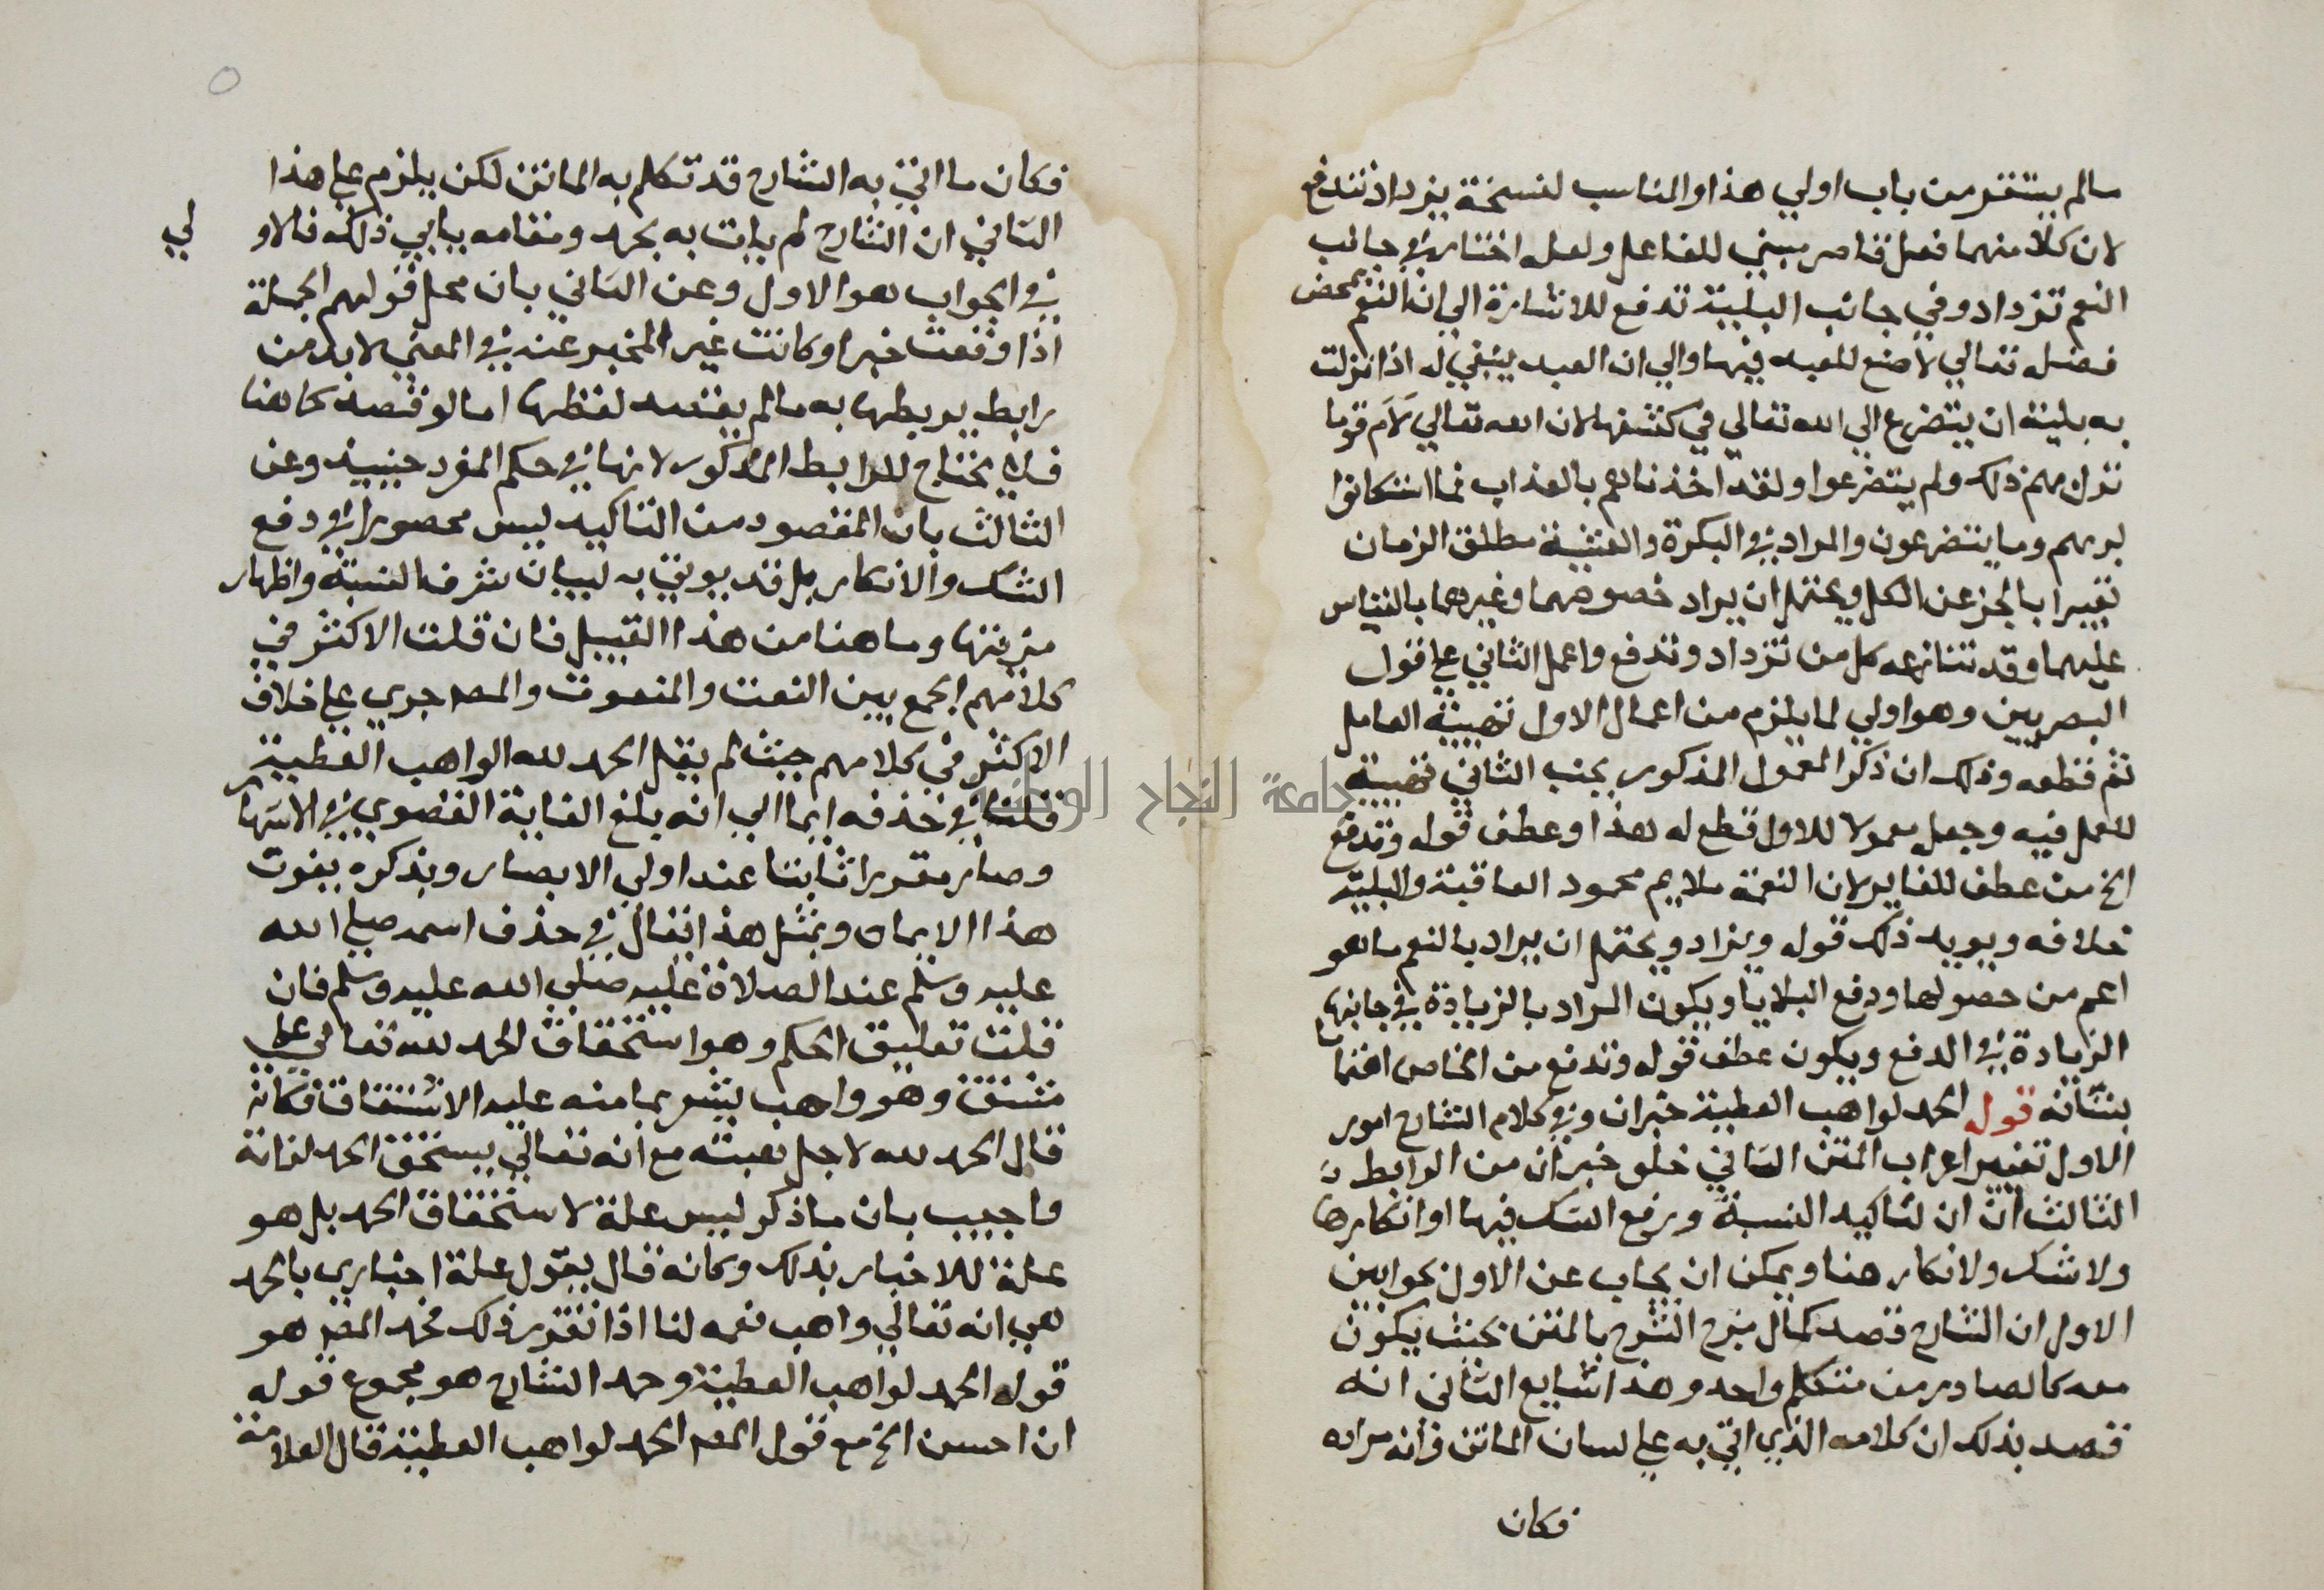 مالم يستقر من باب اولي هذا والمناسب لنسخة يزداد تندفع
لان كلا منهما فعل قاصر مبني للفاعل ولعله اختار في جانب
النعم تزداد وفي جانب البلية تدفع للاشارة الي ان النعم بمحض
فضله تعالي لا صنع للعبد فيها والي ان العبد ينبغي له اذا نزلت
به بلية ان يتضرع الي الله تعالي في كشفها لان الله تعالي لام قوما
نزل بهم ذلك ولم يتضرعوا ولقد اخذناهم بالعذاب فما استكانوا
لربهم وما يتضرعون والمراد في البكرة والعشية مطلق الزمان
تعبيرا بالجزء عن الكل ويحتمل ان يراد خصوصهما وغيرهما بالقياس
عليهما وقد تنازعه كل من تزداد وتدفع واعمل الثاني علي قول
البصريين وهو اولي لما يلزم من اعمال الاول تهيئة العامل
ثم قطعه وذلك ان ذكر المعمول المذكور بجنب الثاني تهيئة
للعمل فيه وجعله معمولا للاول قطع له هذا وعطف قوله وتدفع
الخ من عطف المغاير لان النعمة ملايم محمود العاقبة والبلية
خلافه ويويد ذلك قوله ويزاد ويحتمل ان يراد بالنعم ما هو
اعم من حصولها ودفع البلايا ويكون المراد بالزيادة في جانبها
الزيادة في الدفع ويكون عطف قوله وتدفع من الخاص اهتماما
بشانه قوله الحمد لواهب العطية خبر ان وفي كلام الشارح امور
الاول تغيير اعراب المتن الثاني خلو خبر ان من الرابط
الثالث ان ان لتاكيد النسبة ورفع الشك فيها او انكارها
ولا شك ولا انكار هنا ويمكن ان يجاب عن الاول بجوابين
الاول ان الشارح قصد كمال مزج الشرح بالمتن بحيث يكون
معه كالصادر من متكلم واحد وهذا شايع الثاني انه
قصد بذلك ان كلامه الذي اتي به علي لسان الماتن وانه مراده
فكان
فكان ما اتي به الشارح قد تكلم به الماتن لكن يلزم علي هذا
الثاني ان الشارح لم يات به بحمد ومقامه يابي ذلك فالاو لي
في الجواب هو الاول وعن الثاني بان محل قولهم الجملة
اذا وقعت خبرا وكانت غير المخبر عنه في المعني لا بد من
رابط يربطها به مالم يقصد لفظها اما لو قصد كما هنا
فلا يحتاج للرابط المذكور لانها في حكم المفرد حينيذ وعن
الثالث بان المقصود من التاكيد ليس محصورا في دفع
الشك والانكار بل قد يوتي به لبيان شرف النسبة واظهار
مزيتها وما هنا من هذا القبيل فان قلت الاكثر في
كلامهم الجمع بين النعت والمنعوت والمص جري علي خلاف
الاكثر في كلامهم حيث لم يقل الحمد لله الواهب العطية
قلت في حذفه ايما الي انه بلغ الغاية القصوي في الاشتهار
وصار مقررا ثابتا عند اولي الابصار وبذكره يفوت
هذا الايماء وبمثل هذا يقال في حذف اسمه صلي الله
عليه وسلم عند الصلاة عليه صلي الله عليه وسلم فان
قلت تعليق الحكم وهو استحقاق الحمد لله تعالي علي
مشتق وهو واهب يشعر بما منه عليه الاشتقاق فكانه
قال الحمد لله لاجل هبته مع انه تعالي يستحق الحمد لذاته
واجيب بان ما ذكر ليس علة لاستحقاق الحمد بل هو
علة للاخبار بذلك وكانه قال يقول علة اخباري بالحمد
هي انه تعالي واهب نعمه لنا اذا تقرر ذلك فحمد المص هو
قوله الحمد لواهب العطية وحمد الشارح هو مجموع قوله
ان احسن الخ مع قول المص الحمد لواهب العطية قال العلامة
جامعة النجاح الوطنية